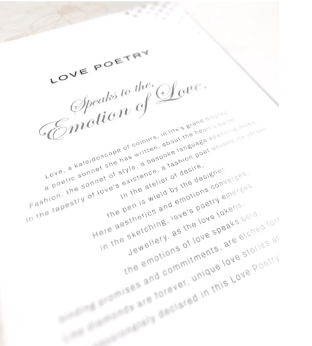 LOVE POETRY
Speaks to the,
Emotion of Love.
Love, a kaleidoscope of colours, in life's grand
a poetic sonnet she has written, about the heart's
Fashion, the sonnet of style, a bespoke language
in the tapestry of love's existence, a fashion poet
In the atelier of desire,
the pen is wield by the designer
Here aesthetics and emotions converges
in the sketching, love's poetry emerges
Jewellery, as the love tokens,
the emotions of love speaks bold,
binding promises and commitments, are etched for
Like diamonds are forever, unique love stories
declared in this Love Poetry